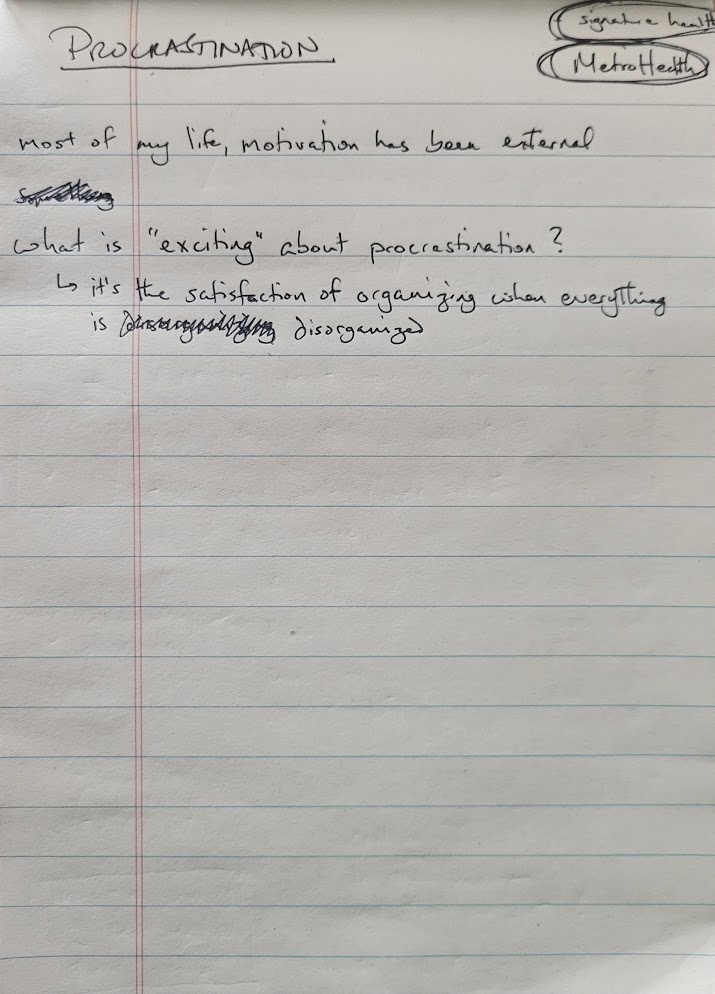 PROCRASTINATION
signature health
MetroHealth
most of my life, motivation has been external
what is "exciting" about procrastination?
↳ it's the satisfaction of organizing when everything
is disorganized